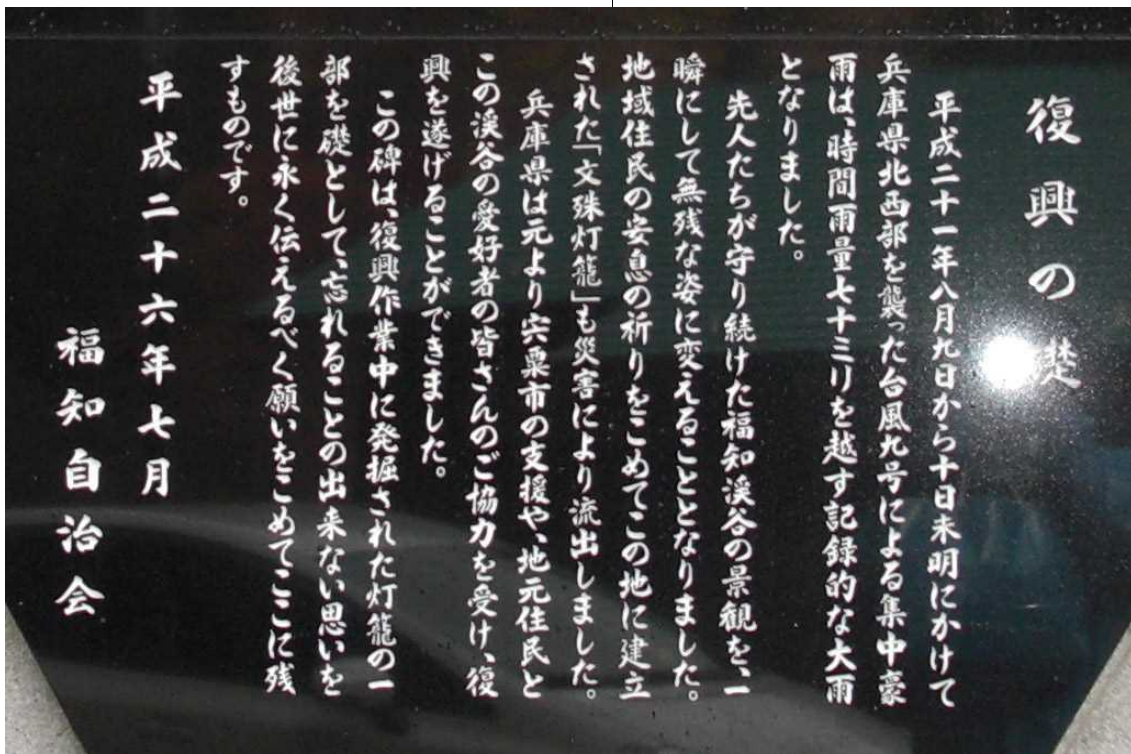 復興の礎
平成二十一年八月九日から十日未明にかけて
兵庫県北西部を襲った台風九号による集中豪
雨は、時間雨量七十三ミリを越す記録的な大雨
となりました。
先人たちが守り続けた福知渓谷の景観を、一
瞬にして無残な姿に変えることとなりました。
地域住民の安息の祈りをこめてこの地に建立
された「文殊灯籠」も災害により流出しました。
兵庫県は元より宍粟市の支援や、地元住民と
この渓谷の愛好者の皆さんのご協力を受け、復
興を遂げることができました。
この碑は、復興作業中に発掘された灯籠の一
部を礎として、忘れることの出来ない思いを
後世に永く伝えるべく願いをこめてここに残
すものです。
平成二十六年七月
福知自治会